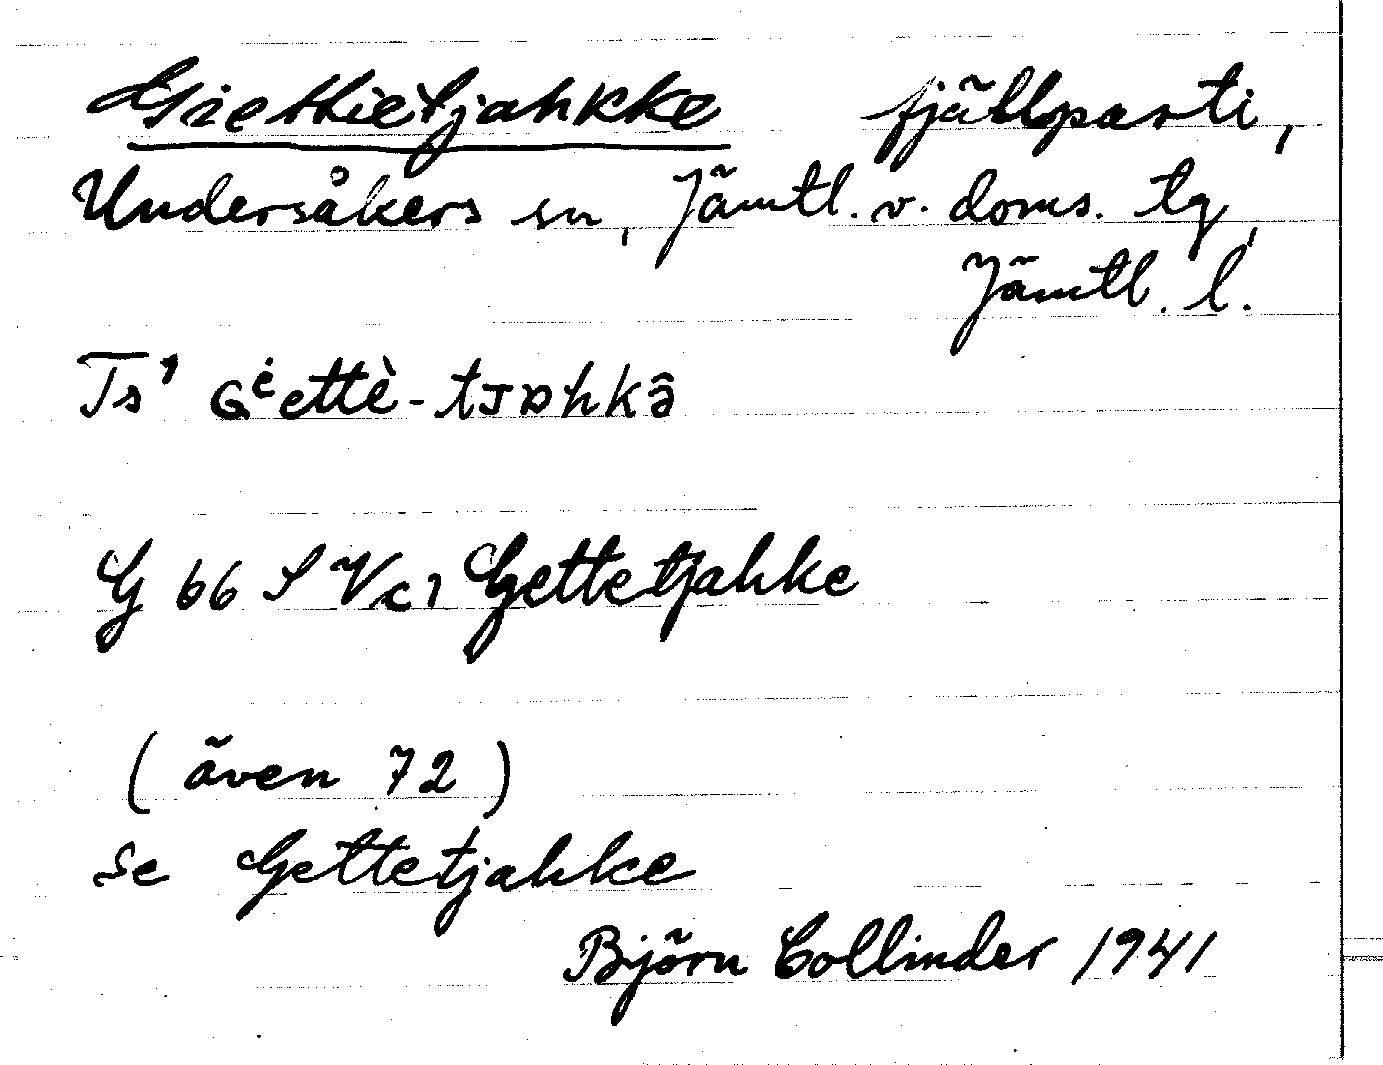 Giettietjahkke fjällparti,
Undersåkers sn, Jämtl. v. doms. tg,
Jämtl. l.
Ts'
G 66 S Vc1 Gettetjahke
(även 72)
se Gettetjahke
Björn Collinder 1941